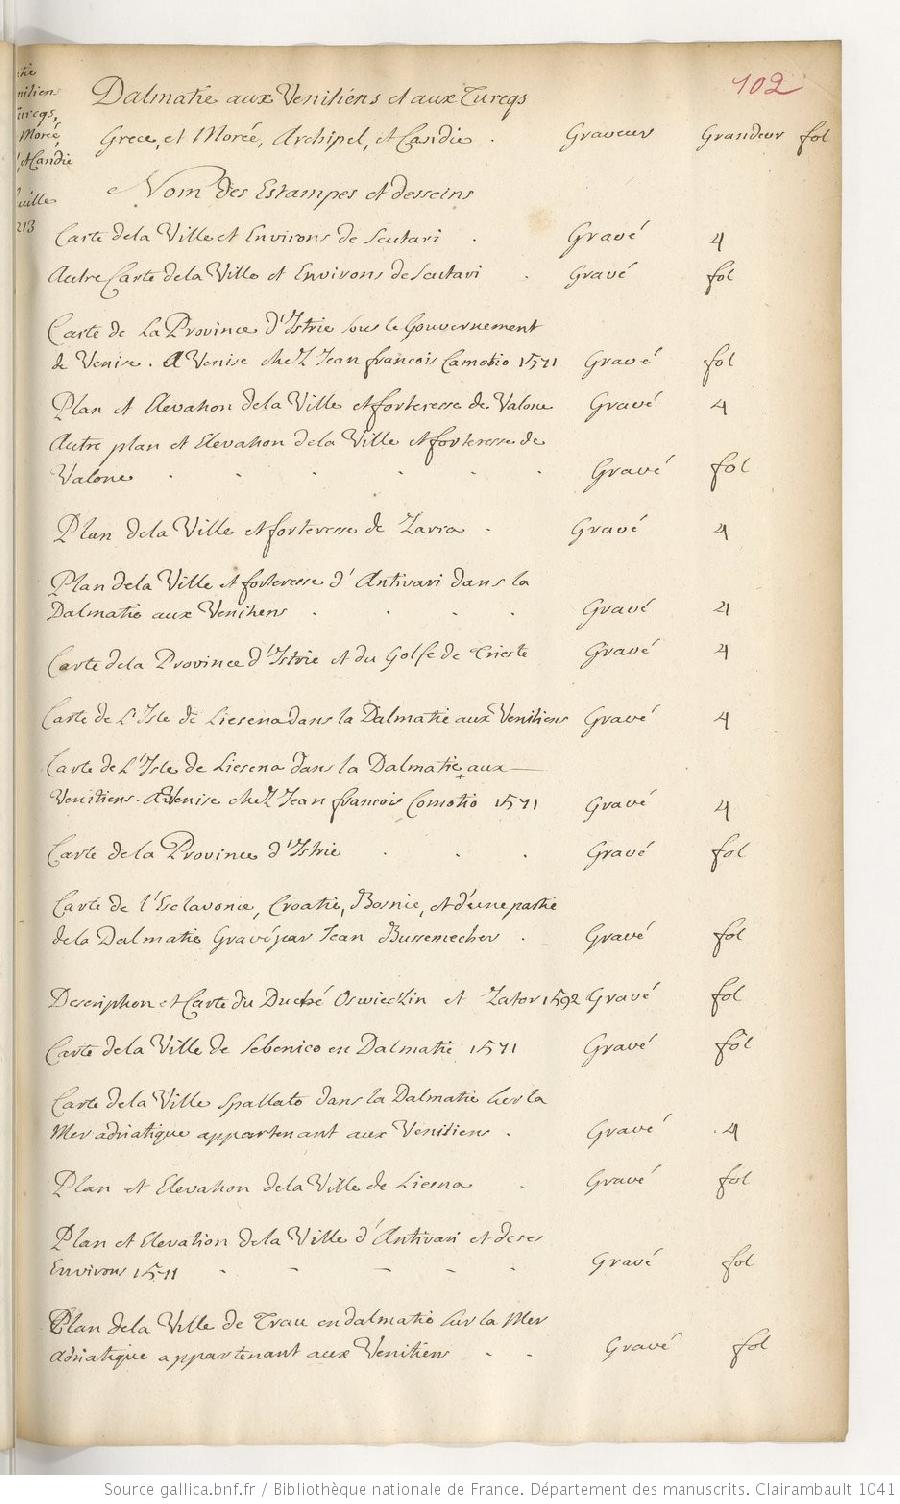 102
Dalmatie aux Venitiens et aux Turcqs
Grece, et Morée, Archipel, et Candie . Graveur Grandeur fol
Nom des Estampes et desseins
Carte dela Ville et Environs de Scutari . Gravé 4
Autre Carte dela Ville et Environs de Scutari . Gravé fol
Carte de La Province d'Istrie sous le Gouvernement
de Venise . A Venise chez Jean francois Camotio 1571 Gravé fol
Plan et Elevation dela Ville et forteresse de Valone Gravé 4
Autre plan et Elevation dela Ville et forteresse de
Valone . . . . . . Gravé fol
Plan dela Ville et forteresse de Zarra . Gravé 4
Plan dela Ville et forteresse d'Antivari dans la
Dalmatie aux Venitiens . . . . Gravé 4
Carte dela Province d'Istrie et du Golfe de Trieste Gravé 4
Carte de L'Isle de Liesena dans la Dalmatie aux Venitiens Gravé 4
Carte de L'Isle de Liesena dans la Dalmatie aux
Venitiens . A Venise chez Jean francois Comotio 1571 Gravé 4
Carte de la Province d'Istrie . . . Gravé fol
Carte de l'Esclavonie, Croatie, Bosnie, et d'une partie
dela Dalmatie Gravé par Jean Bussemecher . Gravé fol
Description et Carte du Duché Oswieczin et Zator 1592 Gravé fol
Carte dela Ville de Sebenico en Dalmatie 1571 Gravé fol
Carte dela Ville Spallato dans la Dalmatie sur la
Mer adriatique appartenant aux Venitiens . Gravé 4
Plan et Elevation dela Ville de Liesina . Gravé fol
Plan et Elevation dela Ville d'Antivari et de ses
Environs 1571 - - - - . Gravé fol
Plan dela Ville de Trau en dalmatie sur la Mer
Adriatique appartenant aux Venitiens . . Gravé fol
Morée,
et Candie
213
Source gallica.bnf.fr / Bibliothèque nationale de France. Département des manuscrits. Clairambault 1041